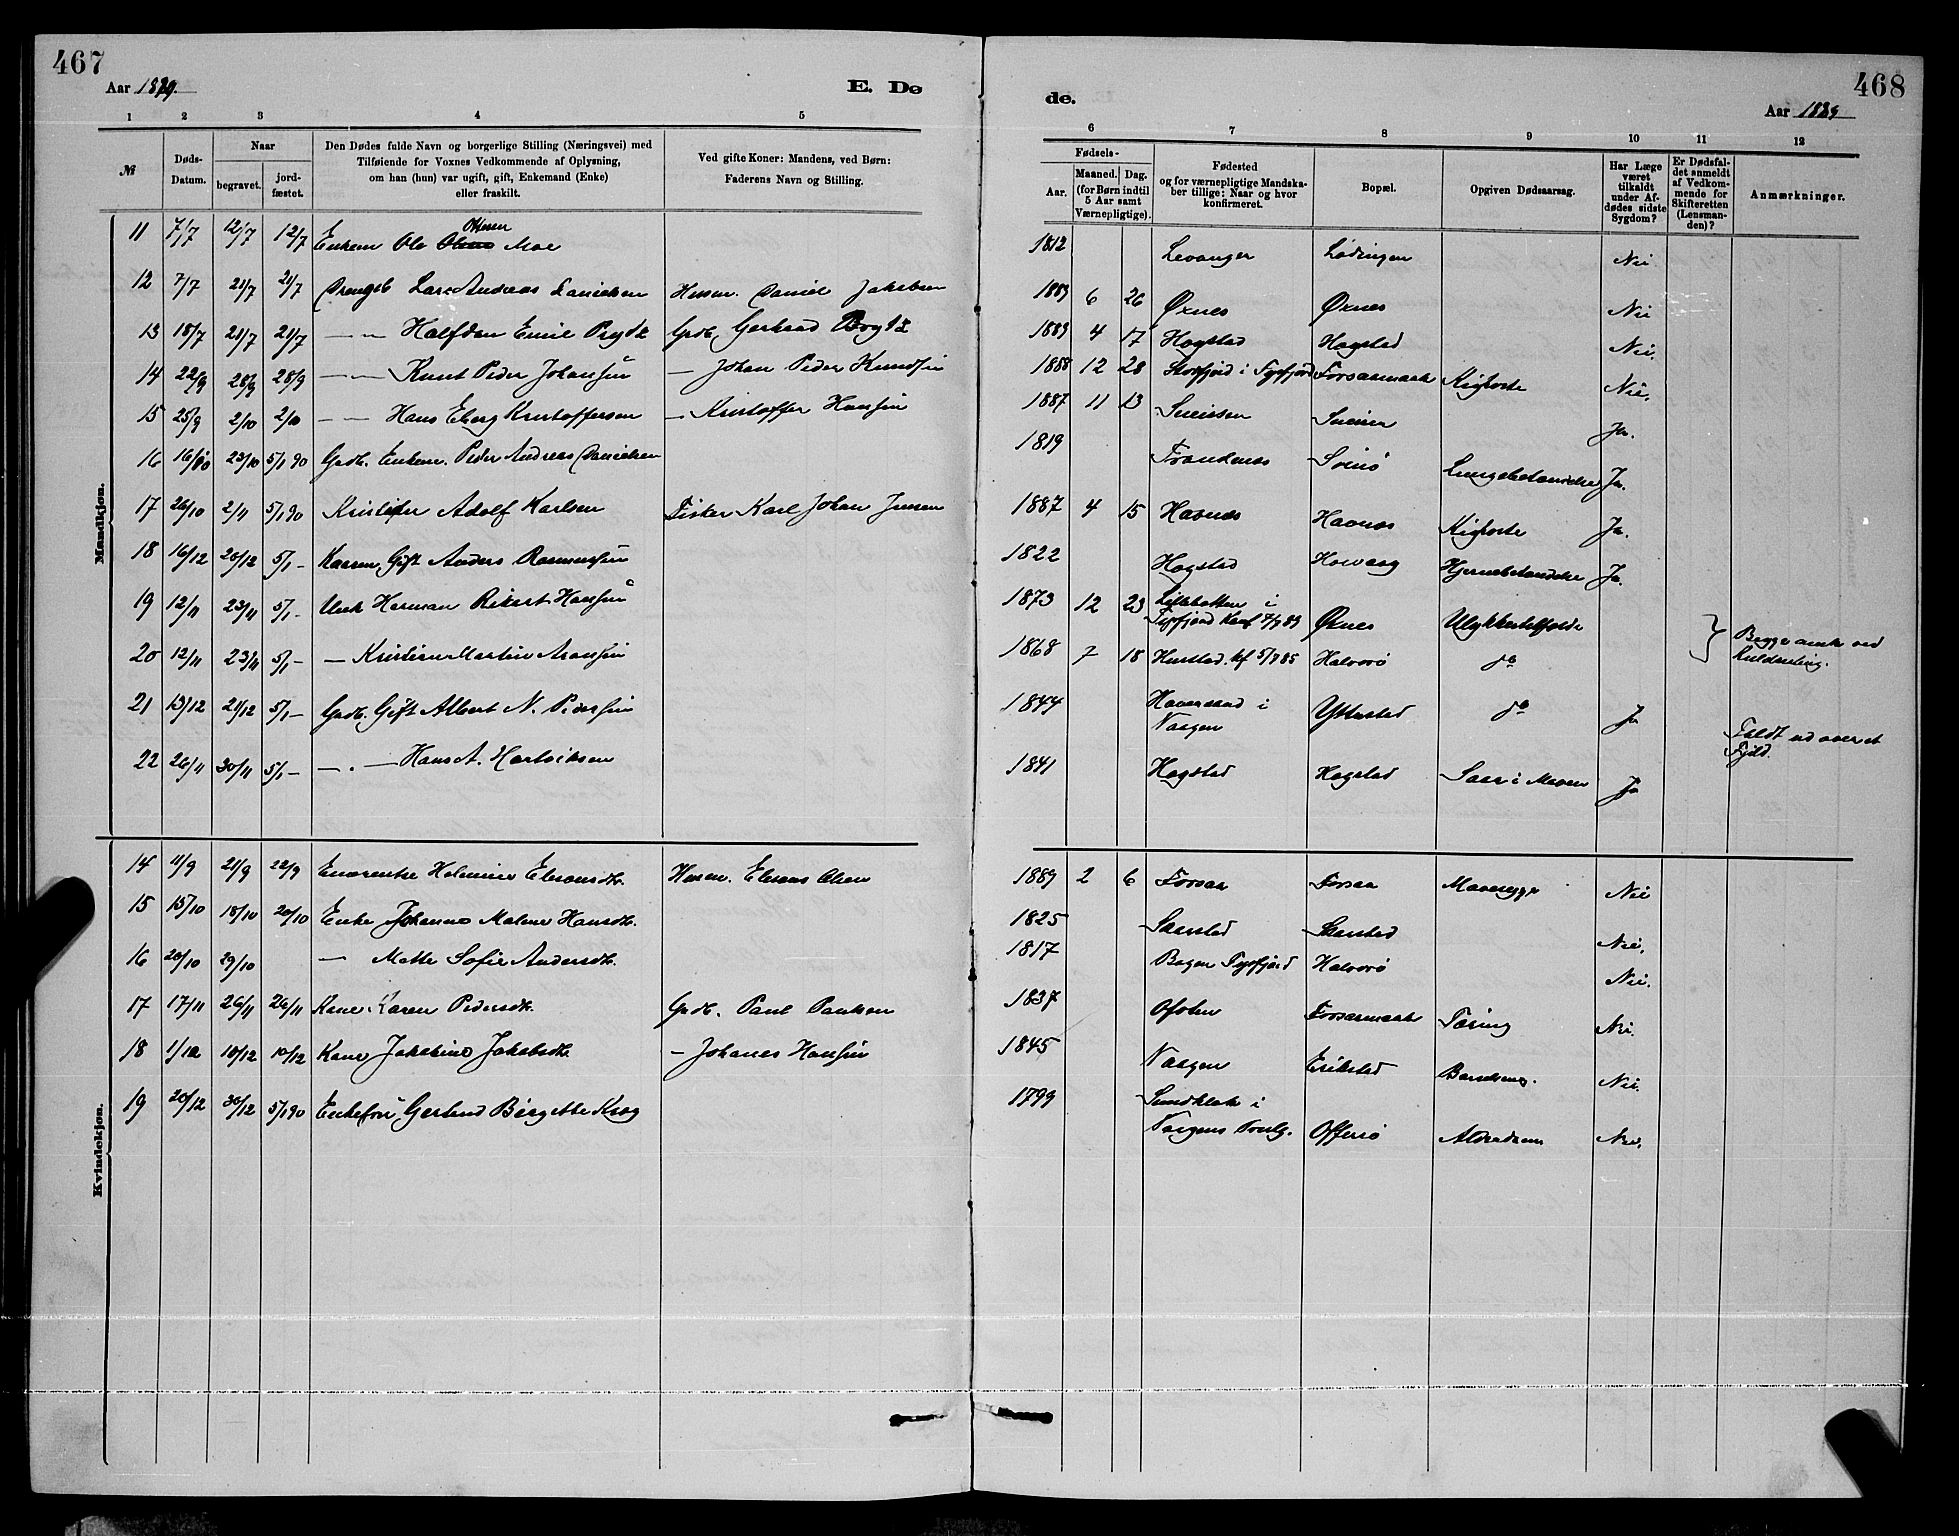 467
Aar 1889.
E. Dø
1 2 3 4 5
№
Døds-Datum.
Naar
begravet.
jordfæstet.
Den Dødes fulde Navn og borgerlige Stilling (Næringsvei) med
Tilføiende for Voxnes Vedkommende af Oplysning,
om han (hun) var ugift, gift, Enkemand (Enke)
eller fraskilt.
Ved gifte Koner: Mandens, ved Børn:
Faderens Navn og Stilling.
Mandkjøn.
11 7/7 12/7 12/7 Enkem Ole Moe
12 7/7 21/7 21/7 Lars Andreas Danielsen Husm. Daniel Jakobsen
13 18/7 21/7 21/7 — " — Halfdan Emil Grdb. Gerhard
14 22/9 28/9 28/9 — " — Knut Peder Johansen — Johan Peder Knudsen
15 25/9 2/10 2/10 — — Hans Eberg Kristoffersen — Kristoffer Hansen
16 23/10 5/1 90 Grdb. Enkem. Peder Andreas Danielsen
17 26/10 2/11 5/1 90 Kristofer Adolf Karlsen Fisker Karl Johan Jensen
18 16/12 20/12 5/1 — Gift Anders Rasmussen
19 12/11 23/11 5/1 — Herman Rikart Hansen
20 12/11 23/11 5/1 — — Kristian Martin Aronsen
21 13/12 21/12 5/1 — Grdb. Gift Albert N. Pedersen
22 26/11 30/11 5/1 — — . — Hans A. Hartviksen
Kvindekjøn.
14 11/9 21/9 22/9 Helmine Husm. Olsen
15 15/10 18/10 20/10 Enke Johanna Malene Hansdtr.
16 20/10 29/10 — Mette Sofie Andersdtr.
17 17/11 26/11 26/11 Kone Karen Pedersdtr. Grdb. Paul Paulsen
18 1/12 10/12 10/12 Kone Jakobine Jakobsdtr. — Johanes Hansen
19 20/12 30/12 5/1 90 Enkefru Gerhard Birgitte Krog
468
de.
Aar 1889
6 7 8 9 10 11 12
Fødsels-
Aar.
Maaned. Dag.
(for Børn indtil
5 Aar samt
Værnepligtige).
Fødested
og for værnepligtige Mandskaber tillige: Naar og hvor
konfirmeret.
Bopæl.
Opgiven Dødsaarsag.
Har Læge
været
tilkaldt
under Afdødes sidste
Sygdom?
Er Dødsfaldet anmeldt
af Vedkommende for
Skifteretten
(Lensmanden)?
Anmærkninger.
1812 Levanger Lødingen Nei
1889 6 26 Øxnes Øxnes Nei
1889 4 17 Hogstad Hogstad Nei.
1888 12 28 Storfjord i Tysfjord Forsaamark Kighoste Nei.
1887 11 13 Ja.
1819 Trondenæs Lungebetændelse Ja.
1887 4 15 Havnæs Havnæs Kighoste Ja.
1822 Hogstad Hjernebetændelse Ja
1873 12 23 Lillebotten i
Tysfjord Øxnes Ulykkestilfælde
1868 7 18 Hustad. kf 5/7 85 Halvorø do
} Begge omk ved
Kuldseiling.
1844 i
Vaagen Yttestad do Ja
Faldt ud over et
Fjeld.
1841 Hogstad Hogstad Saar i Maven Ja
1889 2 6 Forsaa Forsaa Mavesyge Nei
1825 Skarstad Skarstad Nei.
1817 Bogen Tysfjord Halvorø Nei.
1837 Ofoten Forsaamark Tæring Nei.
1845 Vaagen Erikstad Barselseng. Nei.
1799 Sundklak i
Vaagens Prstg. Offersø Alderdom Nei.